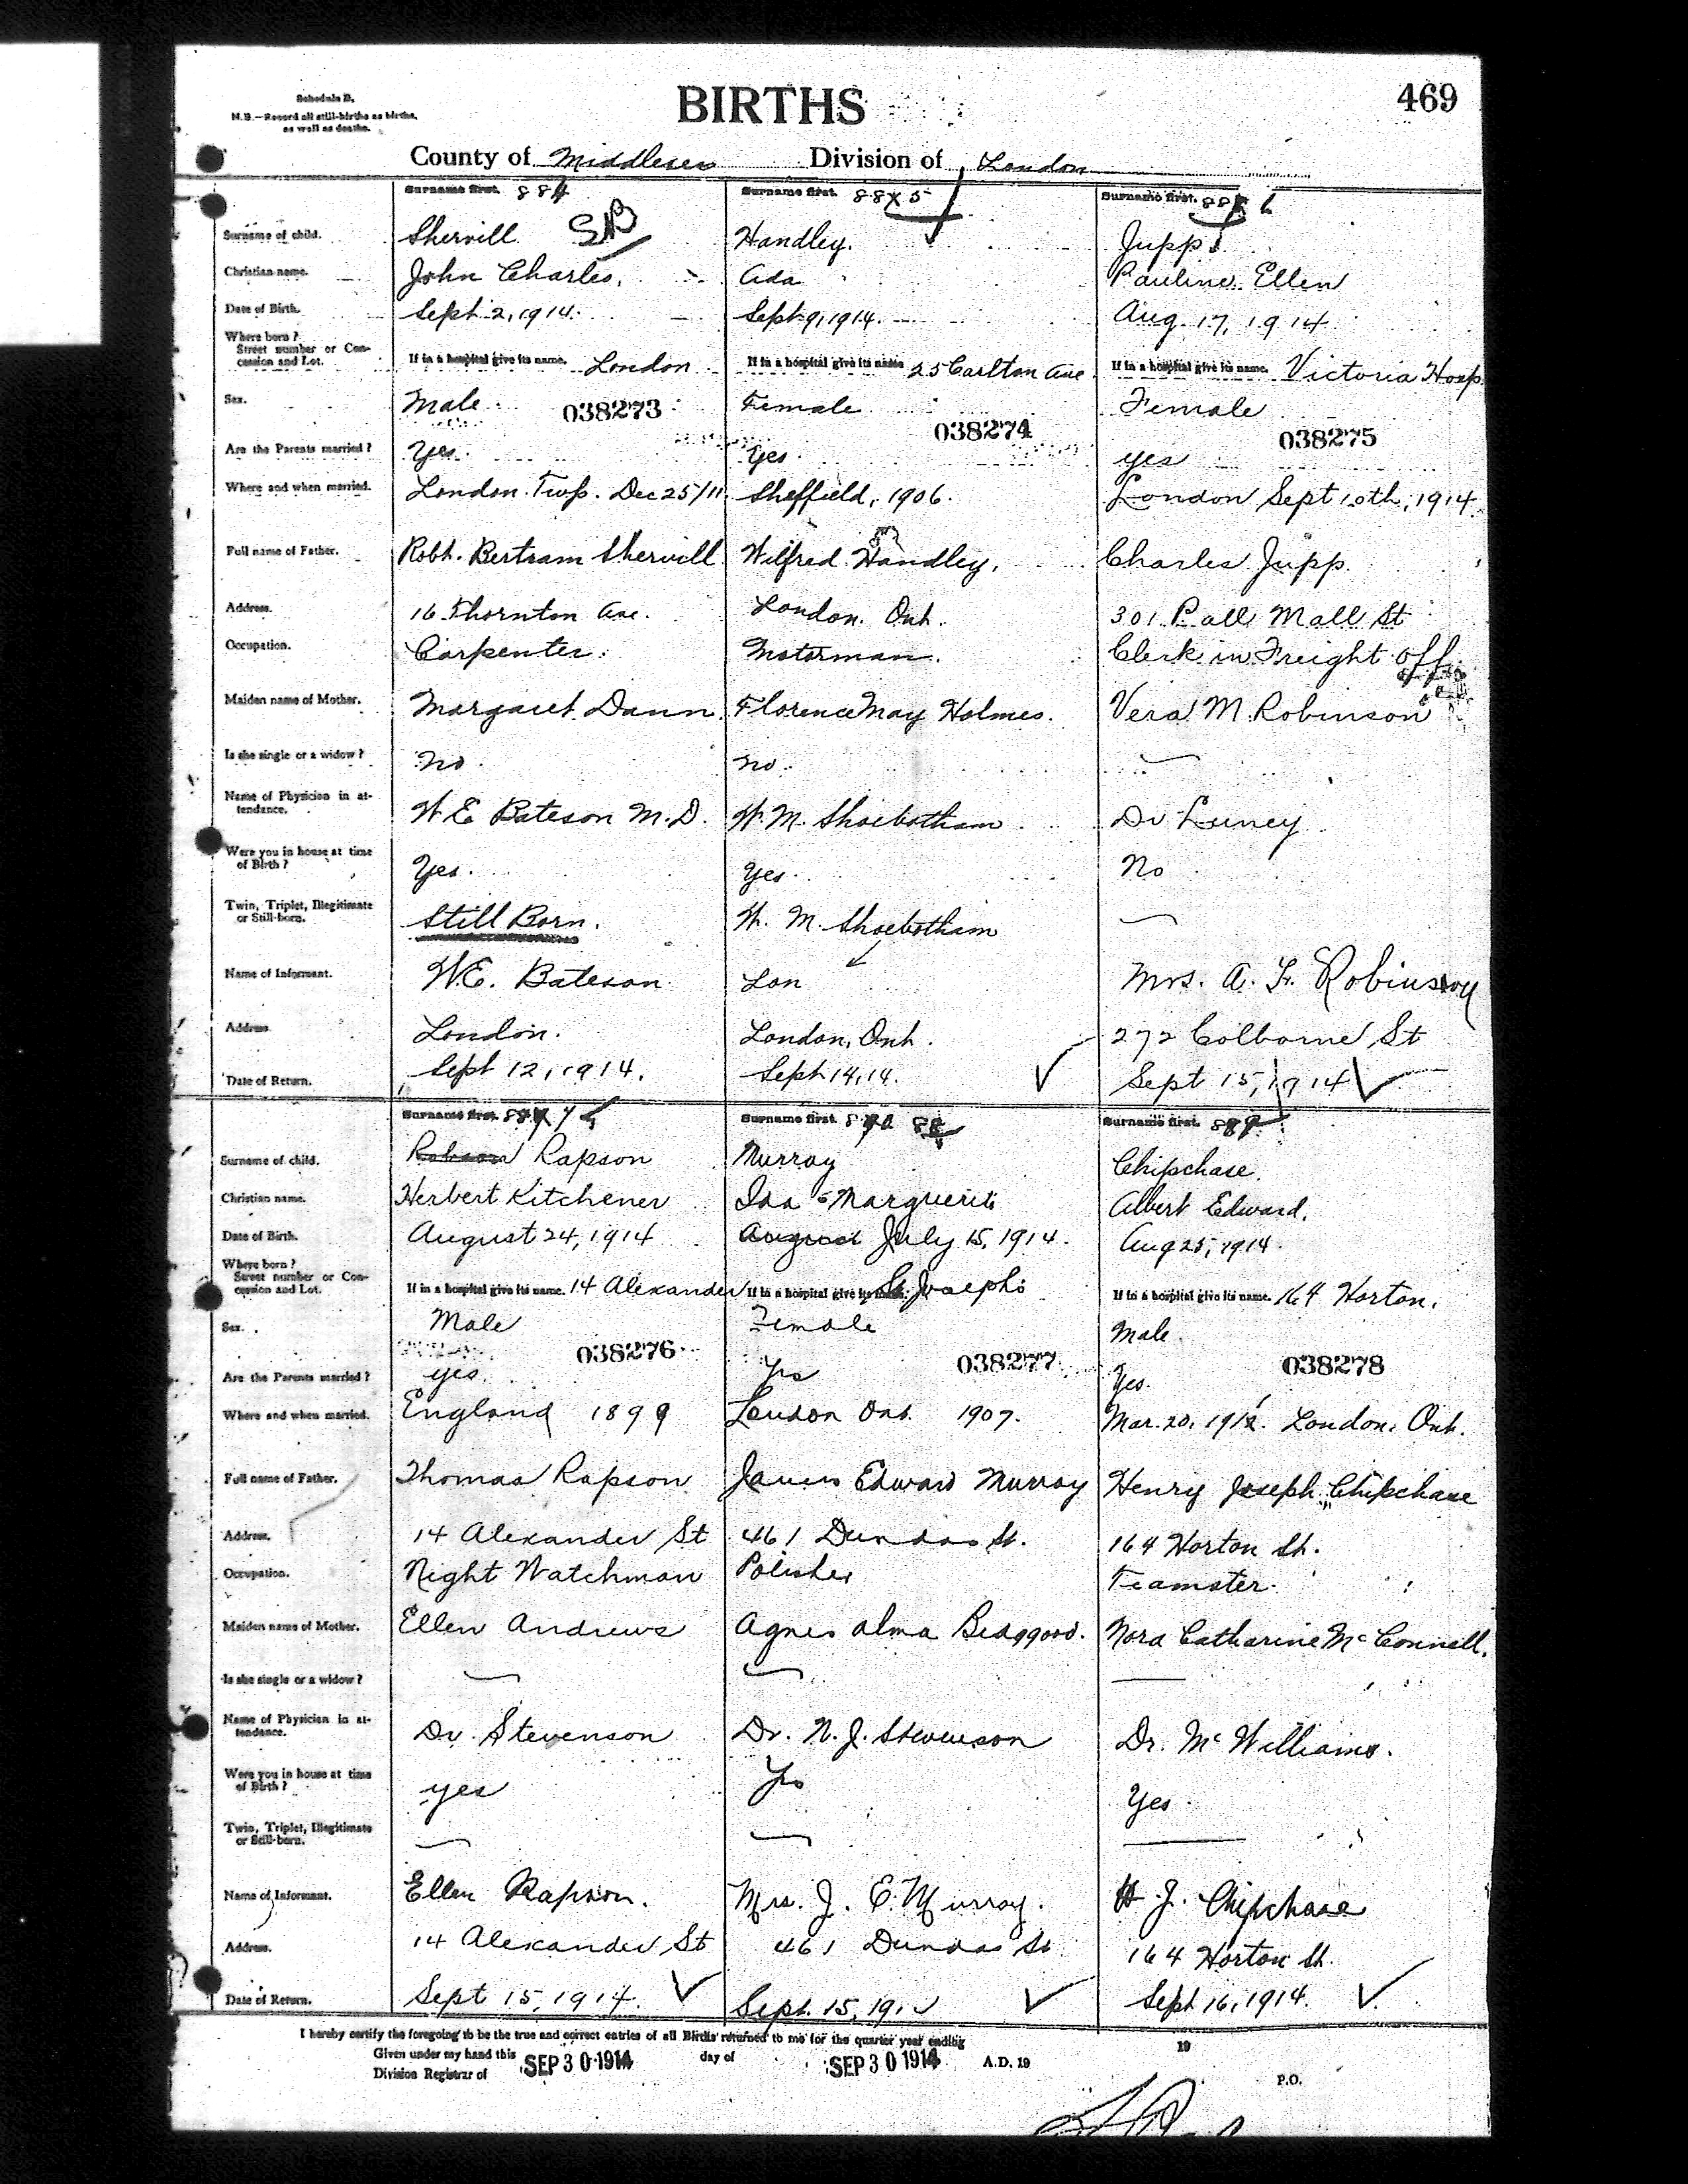 Schedule B.
N.B.—Record all still-births as births, as well as deaths.
BIRTHS
469
County of Middlesex Division of London
Surname first. 884
Surname first. 885
Surname first. 886
Surname of child. Shervill SB Handley. Jupp
Christian name. John Charles. Ada Pauline Ellen
Date of Birth. Sept 2, 1914. Sept 9, 1914. Aug 17, 1914
Where born?
Street number or Concession and Lot. If in a hospital give its name. London If in a hospital give its name 25 Carlton Ave. If in a hospital give its name. Victoria Hosp.
Sex. Male Female Female
038273 038274 038275
Are the Parents married? Yes. Yes. yes
Where and when married. London Twp. Dec 25/11 Sheffield, 1906. London Sept 10th, 1914
Full name of Father. Robt. Bertram Shervill Wilfred Handley. Charles Jupp
Address. 16 Thornton Ave. London. Ont. 301 Pall Mall St
Occupation. Carpenter. Motorman. Clerk in Freight off
Maiden name of Mother. Margaret Dann. Florence May Holmes. Vera M. Robinson
Is she single or a widow? No. no. —
Name of Physician in attendance. W E Bateson M.D. W. M. Shoebotham Dr Luney
Were you in house at time of Birth? Yes. Yes. No
Twin, Triplet, Illegitimate or Still-born. Still Born. W. M. Shoebotham —
Name of Informant. W.E. Bateson Lon Mrs. A. F. Robinson
Address London. London, Ont. 272 Colborne St
Date of Return. Sept 12, 1914. Sept 14, 14. Sept 15, 1914
Surname first. 887
Surname first. 88
Surname first. 889
Surname of child. Robson Rapson Murray Chipchase.
Christian name. Herbert Kitchener Ida Marguerite Albert Edward.
Date of Birth. August 24, 1914 August July 15, 1914. Aug 25, 1914.
Where born?
Street number or Concession and Lot. If in a hospital give its name. 14 Alexander If in a hospital give its name. St Josephs If in a hospital give its name. 164 Horton.
Sex. Male Female Male.
038276 038277 038278
Are the Parents married? yes. Yes Yes.
Where and when married. England 1899 London Ont. 1907. Mar. 20, 191 London, Ont.
Full name of Father. Thomas Rapson James Edward Murray Henry Joseph Chipchase
Address. 14 Alexander St 461 Dundas St. 164 Horton St.
Occupation. Night Watchman Polisher Teamster.
Maiden name of Mother. Ellen Andrews Agnes Alma Beaggood. Nora Catharine McConnell.
Is she single or a widow? — — —
Name of Physician in attendance. Dr. Stevenson Dr. N. J. Stevenson Dr. McWilliams.
Were you in house at time of Birth? yes Yes Yes
Twin, Triplet, Illegitimate or Still-born. — — —
Name of Informant. Ellen Rapson. Mrs. J. E. Murray. H. J. Chipchase
Address. 14 Alexander St 461 Dundas St 164 Horton St.
Date of Return. Sept 15, 1914. Sept. 15, 191 Sept 16, 1914.
I hereby certify the foregoing to be the true and correct entries of all Births returned to me for the quarter year ending 19
Given under my hand this SEP 30 1914 day of SEP 30 1914 A.D. 19
Division Registrar of P.O.